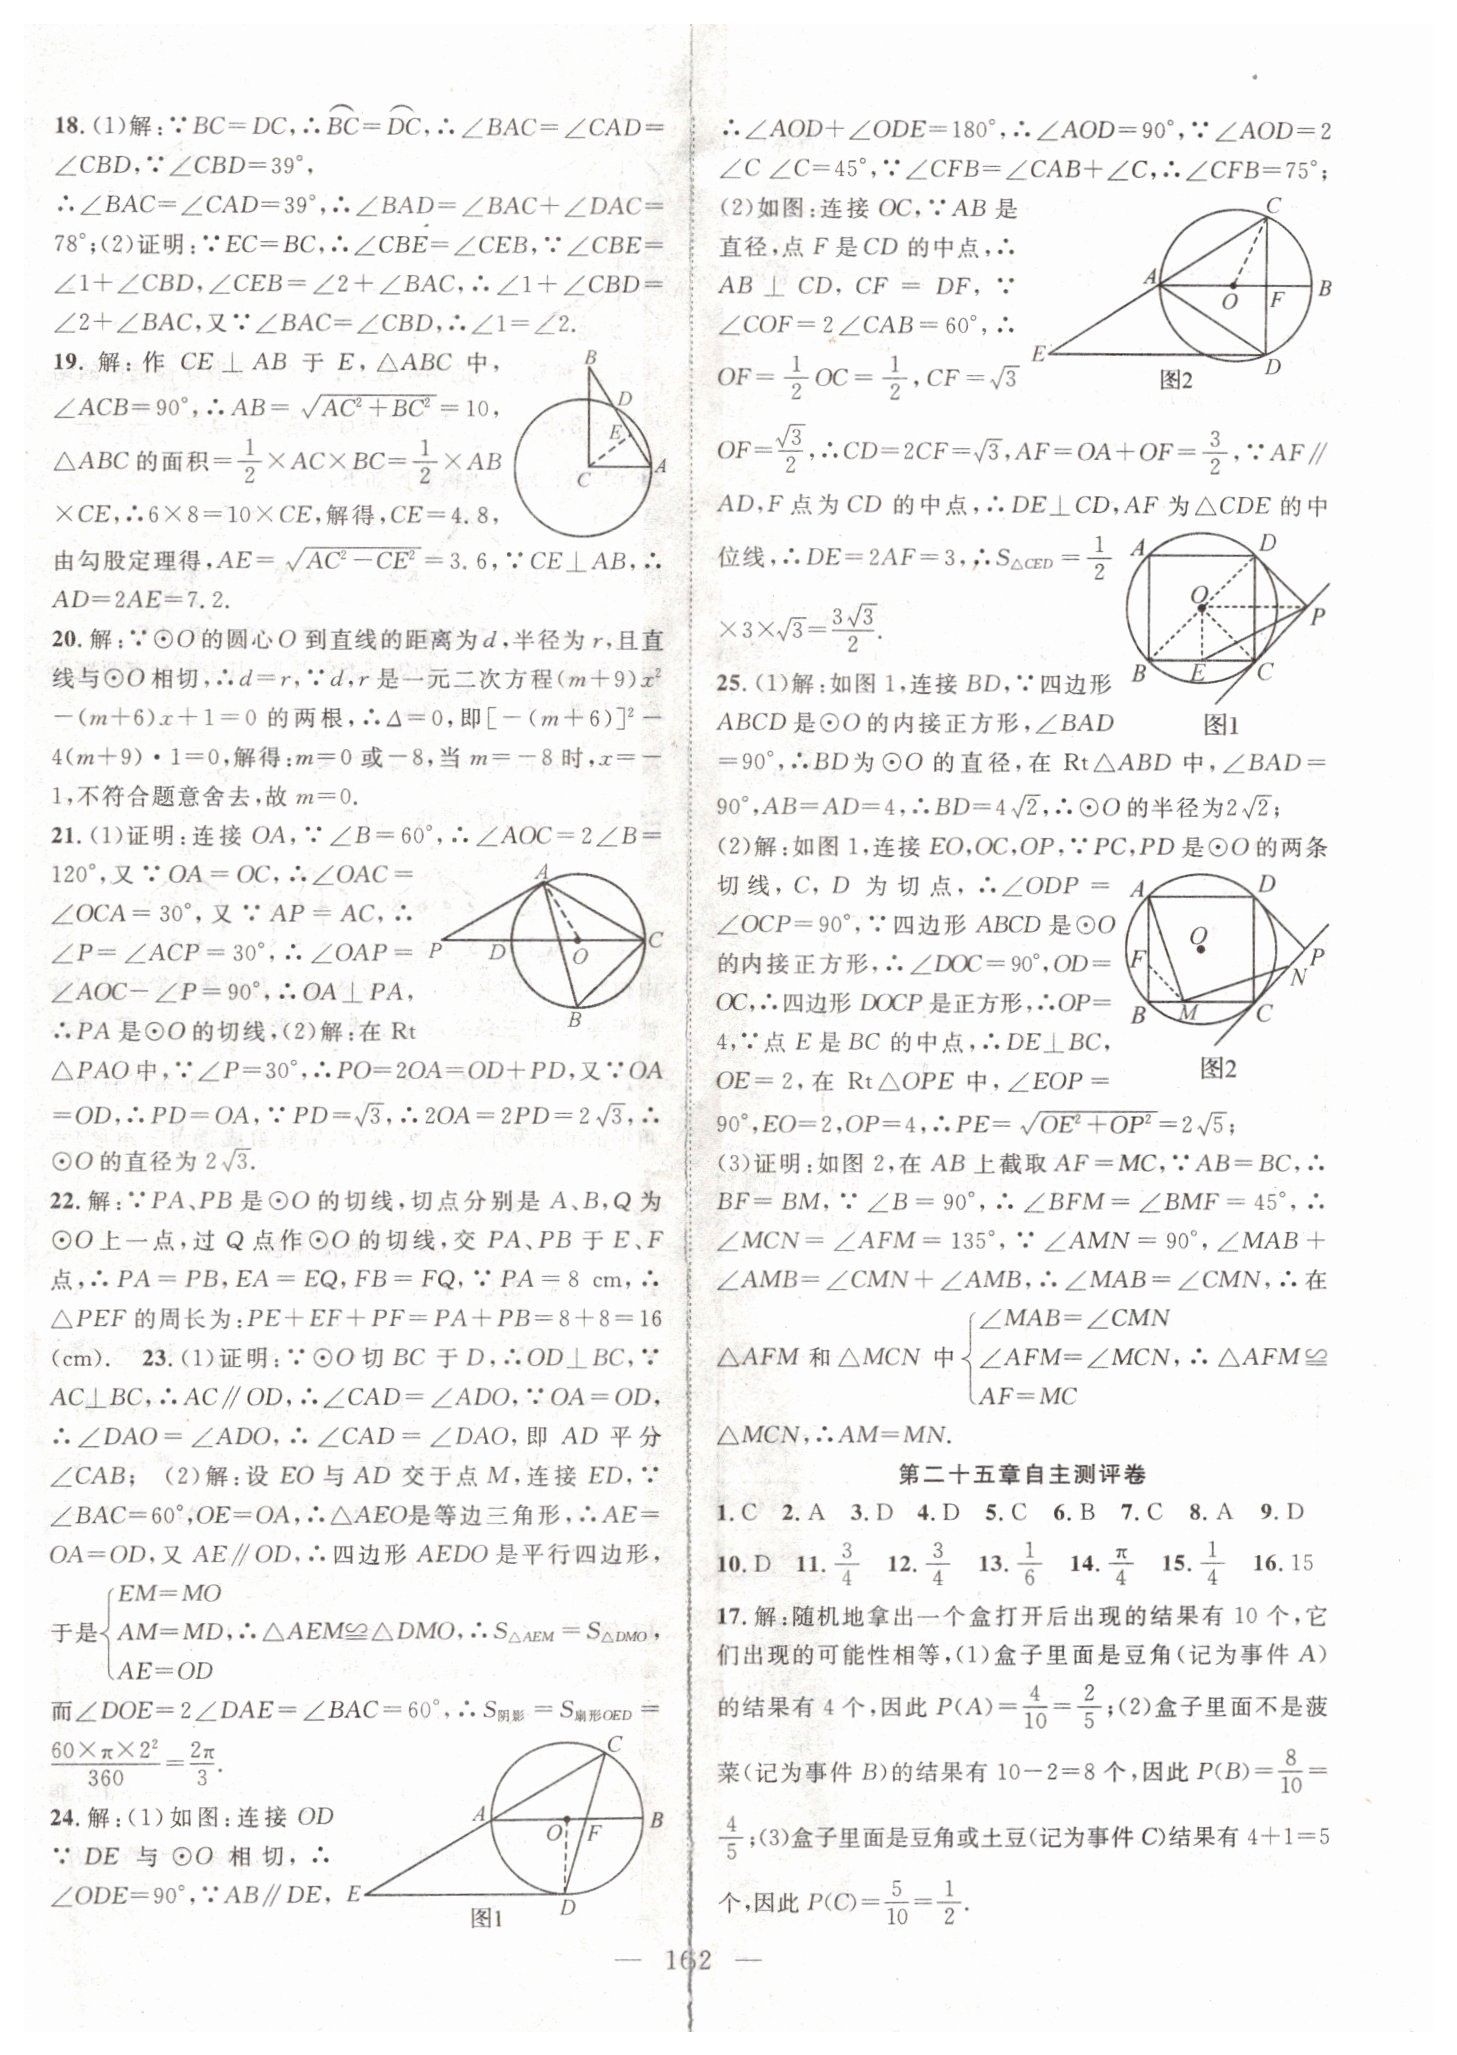 18. (1)解:∵BC=DC,∴BC⌒=DC⌒,∴∠BAC=∠CAD=
∠CBD,∵∠CBD=39°,
∴∠BAC=∠CAD=39°,∴∠BAD=∠BAC+∠DAC=
78°;(2)证明:∵EC=BC,∴∠CBE=∠CEB,∵∠CBE=
∠1+∠CBD,∠CEB=∠2+∠BAC,∴∠1+∠CBD=
∠2+∠BAC,又∵∠BAC=∠CBD,∴∠1=∠2.
19. 解:作 CE⊥AB 于 E,△ABC 中,
∠ACB=90°,∴AB=√(AC²+BC²)=10,
△ABC的面积=1/2×AC×BC=1/2×AB
×CE,∴6×8=10×CE,解得,CE=4.8,
由勾股定理得,AE=√(AC²-CE²)=3.6,∵CE⊥AB,∴
AD=2AE=7.2.
B
D
E
C
A
20. 解:∵⊙O的圆心O到直线的距离为d,半径为r,且直
线与⊙O相切,∴d=r,∵d,r是一元二次方程(m+9)x²
-(m+6)x+1=0 的两根,∴Δ=0,即[-(m+6)]²-
4(m+9)·1=0,解得:m=0或-8,当m=-8时,x=-
1,不符合题意舍去,故m=0.
21. (1)证明:连接 OA,∵∠B=60°,∴∠AOC=2∠B=
120°,又∵OA=OC,∴∠OAC=
∠OCA=30°,又∵AP=AC,∴
∠P=∠ACP=30°,∴∠OAP=
∠AOC-∠P=90°,∴OA⊥PA,
∴PA是⊙O的切线,(2)解:在Rt
A
P
D
O
C
B
△PAO中,∵∠P=30°,∴PO=2OA=OD+PD,又∵OA
=OD,∴PD=OA,∵PD=√3,∴2OA=2PD=2√3,∴
⊙O的直径为2√3.
22. 解:∵PA、PB是⊙O的切线,切点分别是A、B,Q为
⊙O上一点,过Q点作⊙O的切线,交PA、PB于E、F
点,∴PA=PB,EA=EQ,FB=FQ,∵PA=8 cm,∴
△PEF的周长为:PE+EF+PF=PA+PB=8+8=16
(cm). 23. (1)证明:∵⊙O切BC于D,∴OD⊥BC,∵
AC⊥BC,∴AC∥OD,∴∠CAD=∠ADO,∵OA=OD,
∴∠DAO=∠ADO,∴∠CAD=∠DAO,即 AD 平分
∠CAB; (2)解:设EO与AD交于点M,连接ED,∵
∠BAC=60°,OE=OA,∴△AEO是等边三角形,∴AE=
OA=OD,又AE∥OD,∴四边形AEDO是平行四边形,
于是{EM=MO
AM=MD,∴△AEM≌△DMO,∴S△AEM=S△DMO,
AE=OD
而∠DOE=2∠DAE=∠BAC=60°,∴S阴影=S扇形OED=
60×π×2²/360=2π/3.
24. 解:(1)如图:连接 OD
∵DE 与⊙O 相切,∴
∠ODE=90°,∵AB∥DE,
C
A
O
F
B
E
D
图1
∴∠AOD+∠ODE=180°,∴∠AOD=90°,∵∠AOD=2
∠C ∠C=45°,∵∠CFB=∠CAB+∠C,∴∠CFB=75°;
(2)如图:连接 OC,∵AB是
直径,点F是CD的中点,∴
AB⊥CD,CF=DF,∵
∠COF=2∠CAB=60°,∴
OF=1/2OC=1/2,CF=√3
C
A
O
F
B
E
D
图2
OF=√3/2,∴CD=2CF=√3,AF=OA+OF=3/2,∵AF∥
AD,F点为CD的中点,∴DE⊥CD,AF为△CDE的中
位线,∴DE=2AF=3,∴S△CED=1/2
×3×√3=3√3/2.
A
D
O
P
B
E
C
图1
25. (1)解:如图1,连接BD,∵四边形
ABCD是⊙O的内接正方形,∠BAD
=90°,∴BD为⊙O的直径,在Rt△ABD中,∠BAD=
90°,AB=AD=4,∴BD=4√2,∴⊙O的半径为2√2;
(2)解:如图1,连接EO,OC,OP,∵PC,PD是⊙O的两条
切线,C,D 为切点,∴∠ODP=
∠OCP=90°,∵四边形ABCD是⊙O
的内接正方形,∴∠DOC=90°,OD=
OC,∴四边形DOCP是正方形,∴OP=
4,∵点E是BC的中点,∴DE⊥BC,
OE=2,在Rt△OPE中,∠EOP=
A
D
O
F
P
N
B
M
C
图2
90°,EO=2,OP=4,∴PE=√(OE²+OP²)=2√5;
(3)证明:如图2,在AB上截取AF=MC,∵AB=BC,∴
BF=BM,∵∠B=90°,∴∠BFM=∠BMF=45°,∴
∠MCN=∠AFM=135°,∵∠AMN=90°,∠MAB+
∠AMB=∠CMN+∠AMB,∴∠MAB=∠CMN,∴在
△AFM 和△MCN 中{∠MAB=∠CMN
∠AFM=∠MCN,∴△AFM≌
AF=MC
△MCN,∴AM=MN.
第二十五章自主测评卷
1. C 2. A 3. D 4. D 5. C 6. B 7. C 8. A 9. D
10. D 11. 3/4 12. 3/4 13. 1/6 14. π/4 15. 1/4 16. 15
17. 解:随机地拿出一个盒打开后出现的结果有10个,它
们出现的可能性相等,(1)盒子里面是豆角(记为事件A)
的结果有4个,因此P(A)=4/10=2/5;(2)盒子里面不是菠
菜(记为事件B)的结果有10-2=8个,因此P(B)=8/10=
4/5;(3)盒子里面是豆角或土豆(记为事件C)结果有4+1=5
个,因此P(C)=5/10=1/2.
— 162 —